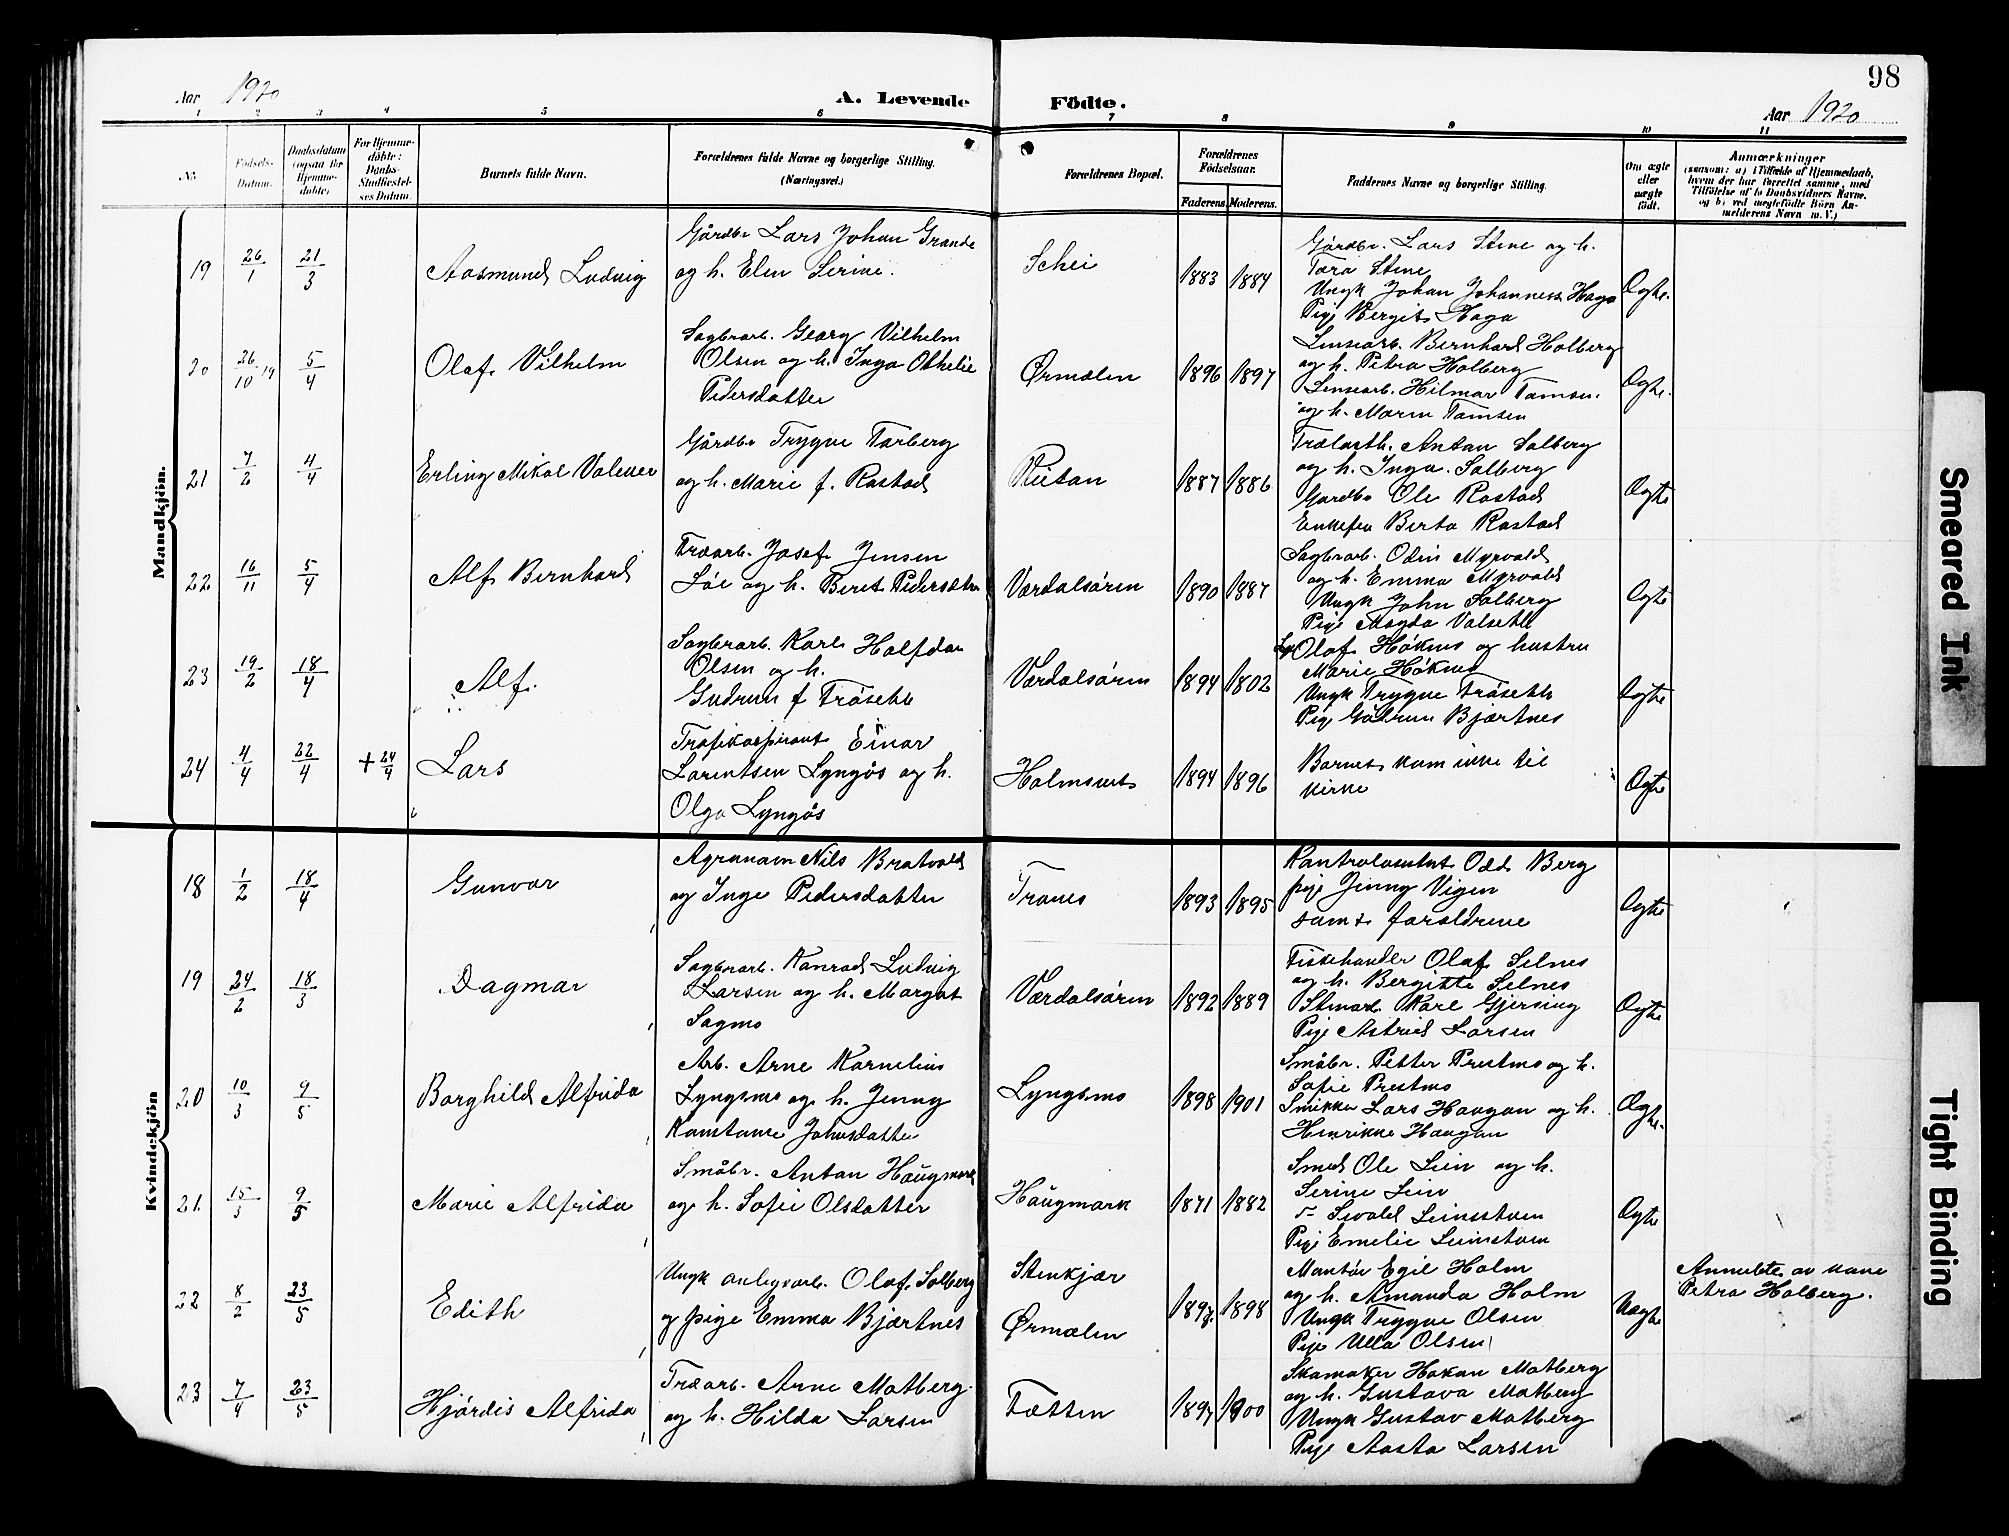 98
Aar 1920
A. Levende Födte.
Aar 1920
1 2 3 4 5 6 7 8 9 10 11
No.
Födsels-
Datum.
Daabsdatum
(ogsaa for
Hjemme-
döbte)
For Hjemme-
döbte:
Daabs-
Stadfæstel-
ses Datum.
Barnets fulde Navn.
Forældrenes fulde Navne og borgerlige Stilling.
(Næringsvei.)
Forældrenes Bopæl.
Forældrenes
Födselsaar.
Faderens. Moderens.
Faddernes Navne og borgerlige Stilling.
Om ægte
eller
uægte
födt.
Anmærkninger
(saasom: a) i Tilfælde af Hjemmedaab,
hvem der har forrettet samme, med
Tilföielse af to Daabsvidners Navne,
og b) ved uægtefödte Börn An-
melderens Navn m. V.)
Mandkjön.
19 26/1 21/3 Aasmund Ludvig
Gårdbr Lars Johan Grande
og h. Elen Serine.
Schei 1883 1884
Gårdbr. Lars Stene og h.
Tora Stene
Ungk Johan Johanness Haga
Pige Bergit Haga
Ægte.
20 26/10 19 5/4 Olaf Vilhelm
Sagbrarb. Georg Vilhelm
Olsen og h. Inga Othelie
Pedersdatter
Ørmælen 1896 1897
Lensearb. Bernhard Holberg
og h. Petra Holberg
Lensearb. Hilmar Tomsen.
og h. Maren Tomsen
Ægte.
21 7/2 4/4 Erling Mikal Valener
Gårdbr Trygve Torberg
og h. Marie f. Rostad
1887 1886
Trælasth. Anton Solberg
og h. Inga Solberg
Gardbr Ole Rostad
Enkefru Berta Rostad
Ægte
22 16/11 5/4 Alf Bernhard
Træarb. Josef Jensen
og h. Beret Pedersdtr
Værdalsören 1890 1887
Sagbrarb. Odin Myrvold
og h. Emma Myrvold
Ungk John Solberg
Pige Magda Valseth
Ægte
23 19/2 18/4 Alf.
Sagbrarb. Karl Halfdan
Olsen og h.
Gudrun f Tröseth
Værdalsören 1894 1802
Olaf Höknes og hustru
Marie Höknes
Ungk Trygve Tröseth
Pige Gudrun Bjærtnes
Ægte
24 4/4 22/4 + 24/4 Lars
Trafikaspirant Einar
Lorentsen Lyngös og h.
Olga Lyngös
Holmsvet 1894 1896
Barnet kom ikke til
kirke
Ægte
Kvindekjön
18 1/2 18/4 Gunvor
Agronom Nils Bratvold
og Inge Pedersdatter
Trones 1893 1895
Kontrolassistent Odd Berg
pige Jenny Vigen
samt foreldrene
Ægte
19 24/2 18/3 Dagmar
Sagbrarb. Konrad Ludvig
Larsen og h. Margat
Sagmo
Værdalsören 1892 1889
Fiskehandler Olaf Selnes
og h. Bergitte Selnes
Karl Gjersing
Pige Astrid Larsen
Ægte
20 10/3 9/5 Borghild Alfrida
Arb. Arne Kornelius
Lyngsmo og h. Jenny
Konstanse Johnsdatter
Lyngsmo 1898 1901
Småbr. Petter Prestmo og h.
Sofie Prestmo
Snikker Lars Haugan og h.
Henrikke Haugan
Ægte.
21. 15/3 9/5 Marie Alfrida
Småbr. Anton Haugmark
og h. Sofie Olsdatter
Haugmark 1871 1882
Smed Ole Lein og h.
Serine Lein
Sivald Leinstrom
Pige Emelie Leinstrom
Ægte
22 8/2 23/5 Edith
Ungk anlegsarb. Olaf Solberg
og pige Emma Bjærtnes
Stenkjær
Ørmælen
1897. 1898
Montör Egil Holm
og h. Amanda Holm
Ungk Trygve Olsen
Pige Ulla Olsen
Uægte
Anmeldte av kone
Petra Holberg.
23 7/4 23/5 Hjördis Alfrida
Træarb. Arne Motberg
og h. Hilda Larsen
Tætten 1897 1900
Skomaker Hakon Motberg
og h. Gustava Motberg
Ungk Gustav Motberg
Pige Aasta Larsen
Smeared Ink
Tight Binding